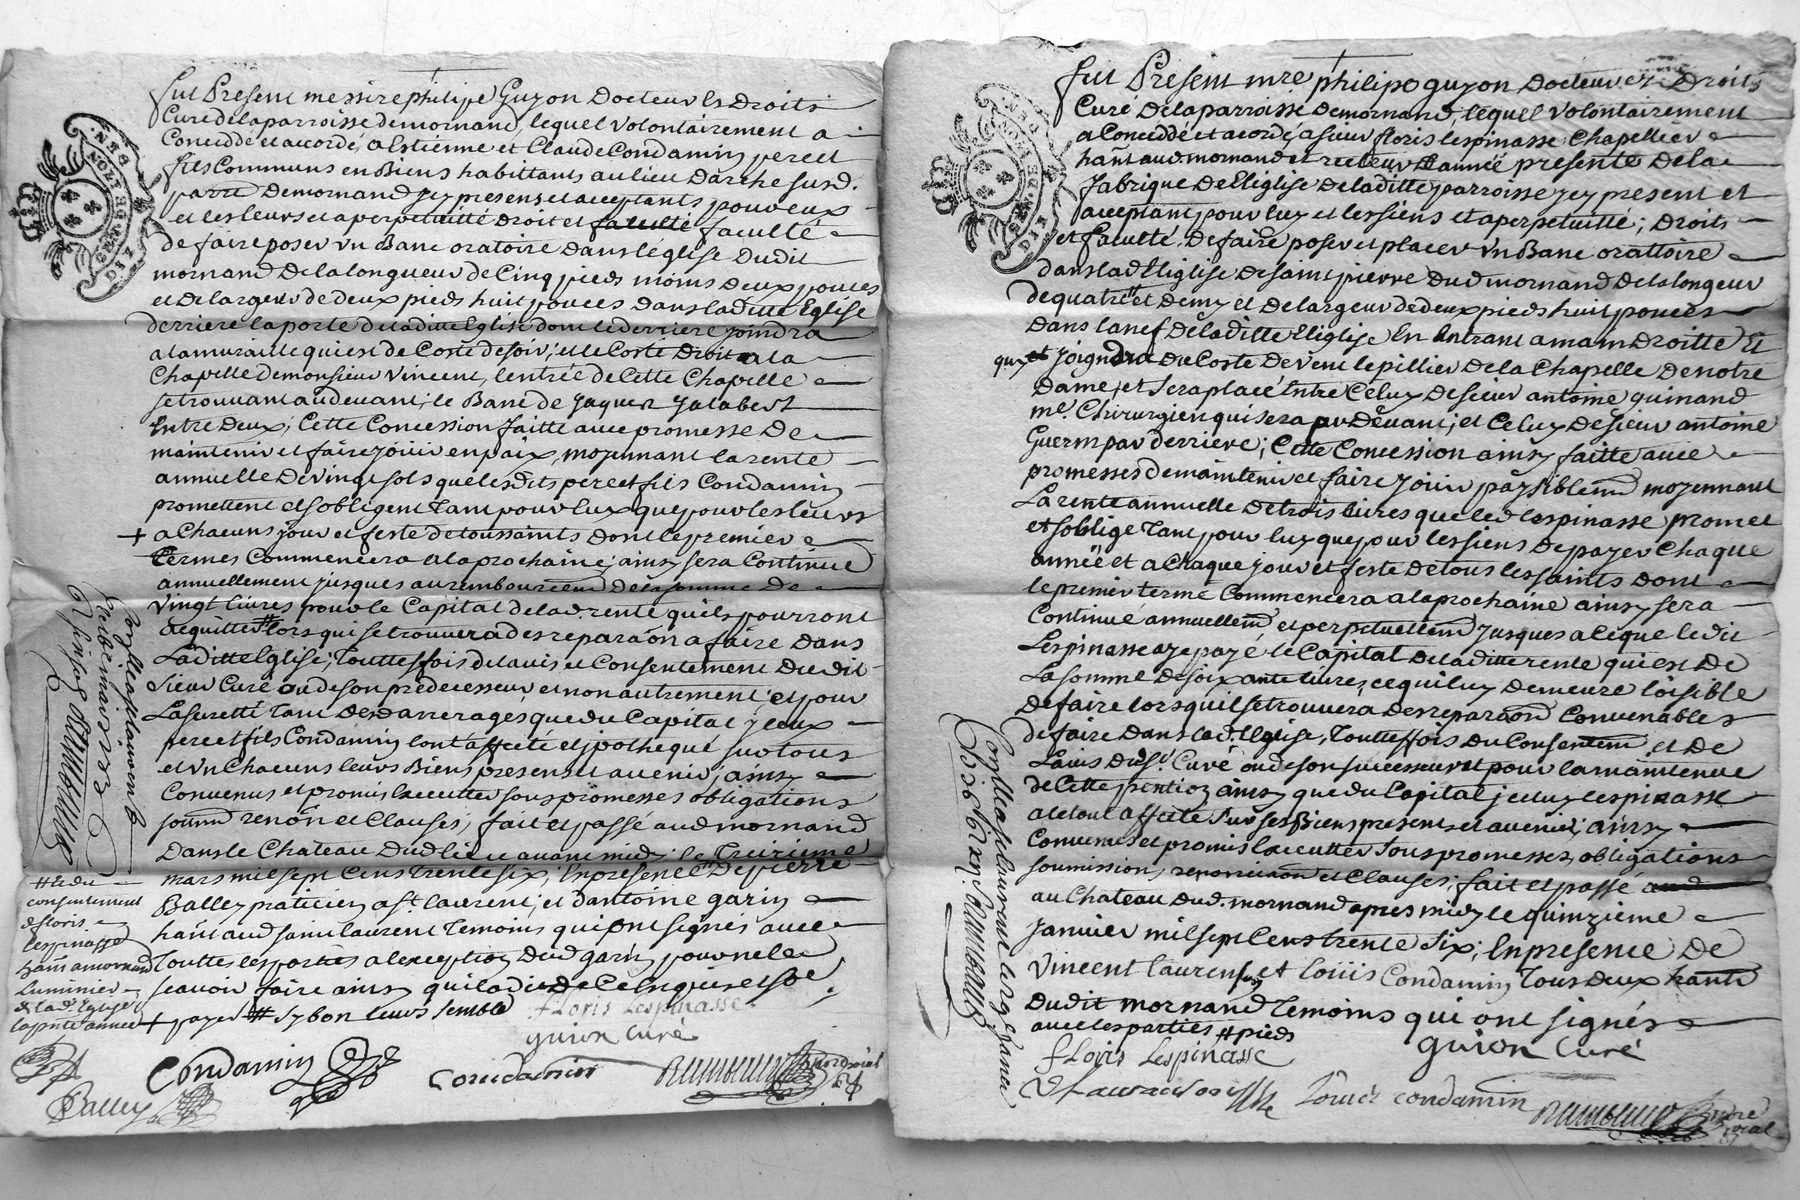 fut Present messire philipe Guyon Docteur es Droits
Curé de la parroisse de mornand, lequel volontairement a
Conceddé et accordé, a Estienne et Claude Condamin pere et
fils Communs en Biens habittants au lieu Darthe susd.
parre de mornand jcy presens et acceptants pour eux
et les leurs et a perpetuitté droit et faculté faculté
de faire poser un Banc oratoire dans leglise dudit
mornand De la longueur de Cinq pieds moins deux pouces
et de largeur de deux pieds huit pouces dans laditte Eglise
derriere la porte de laditte Eglise dont le derriere joindra
a la muraille qui est de Costé de soir; et le Costé droit a la
Chapelle de monsieur Vincent, lentrée de Cette Chapelle
se trouvant audevant; le Banc de Jaques Jalabert
Entre deux; Cette Concession faitte avec promesse De
maintenir et faire jouir en paix, moyennant la rente
annuelle De vingt sols que lesdits pere et fils Condamin
promettent et sobligent tant pour Eux que pour les leurs
+ a Chacuns jour et feste de toussaints dont le premier
termes Commencera a la prochaine; ainsy sera Continué
annuellement jusques au remboursem de la somme De
Vingt livres pour le Capital de lad. rente quils pourront
acquitter # lors qui se trouvera des reparaon a faire dans
Laditte Eglise; Touttesfois de lavis et Consentement du dit
Sieur Curé ou de son predecesseur et non autrement; et pour
La seuretté tant des darrerages que du Capital jceux
pere et fils Condamin lont affecté et ipothequé sur tous
et un Chacuns leurs Biens presens et avenir; ainsy
Convenus et promis Executter sous promesses obligations
soumn renon et Clauses; fait et passé aud mornand
Dans le Chateau dud lieu avant midy le Treizieme
mars mil sept Cens trente six; En presence De pierre
Balley praticien a st. laurent; et d'antoine garin
hant aud saint laurent Temoins qui ont signés avec
Touttes les parties a lexception dud garin pour ne le
scavoir faire ainsy quil a dit De Ce Enquis et some;
+ payer # sy bon leurs semble
# et du
consentement
de floris
lespinasse
hant a mornand
luminier
de lad. Eglise
la pnte année
floris Lespinasse
guion Curé
Condamin
Condamin
Balley
fut Present mre philipe guyon Docteur es Droits
Curé De la parroisse De mornand, lequel volontairement
a Conceddé et acordé, a sieur floris lespinasse Chapellier
hant aud. mornand et recteur Lannée presente de la
fabrique De Eliglise De laditte parroisse jcy present et
acceptant pour luy et les siens et a perpetuitté; Droits
et faculté, De faire poser et placer un Banc orattoire
dans lad Eliglise De saint pierre dud mornand De la longeur
de quatre # et Demy et De largeur De deux pieds huit pouces
Dans la nef De laditte Eliglise En Entrant a main Droitte Et
qui joigndra du Costé De Vent le pillier De la Chapelle De notre
Dame, et sera placé Entre Celuy de sieur antoine guinand
me. Chirurgien qui sera par Devant; et Celuy De sieur antoine
Guerin par derriere; Cette Concession ainsy faitte avec
promesses de maintenir et faire jouir paysiblemt moyennant
La rente annuelle De trois livres que led lespinasse promet
et soblige Tant pour luy que pour les siens De payer Chaque
année et a Chaque jour et feste De tous les saints dont
le premier terme Commencera a la prochaine ainsy sera
Continué annuellemt et perpetuellemt jusques a ce que ledit
Lespinasse aye payé le Capital de laditte rente qui est De
La somme De soixante livres, ce qui luy demeure loisible
De faire lors quil se trouvera Des reparaon Convenables
De faire Dans lad. Eliglise, Touttesfois Du Consentemt et De
Lavis Dudst Curé ou de son successeur et pour la maintenue
de Cette pention ainsy que du Capital jceluy lespinasse
a le tout affecté sur ses Biens presents et avenir; ainsy
Convenus et promis Executter sous promesses, obligations
soumission, renonciaon et Clauses; fait et passé
au Chateau Dud. mornand apres midy le quinzieme
Janvier mil sept Cens trente six; En presence De
Vincent laurenson et Louis Condamin tous deux hants
Dudit mornand Temoins qui ont signés
avec les parties # pieds
floris Lespinasse
guion Curé
Louis condamin